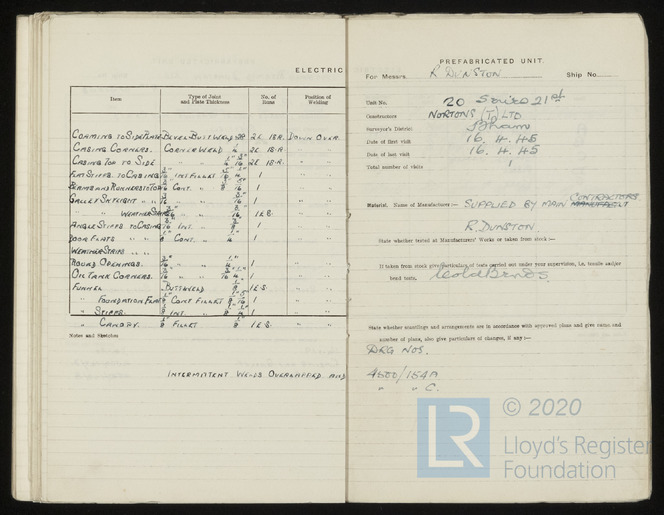 ELECTRIC
Item Type of Joint and Plate Thickness No. of Runs Position of Welding
COAMING TO SIDE PLATE BEVEL BUTT WELD 2E 1S.R. DOWN OVER
CASING CORNERS. CORNER WELD 2E 1S.R. " "
CASING TOP TO SIDE " " 2E 1S.R. " "
FLAT STIFFS TO CASING INT FILLET 1 " "
BEAMS AND RUNNERS TO TOP CONT. " 1 " "
GALLEY SKYLIGHT " " " " 1 " "
" " WEATHER " " 1E S. " "
ANGLE STIFFS TO CASING INT. " 1 " "
DOOR FLATS " " CONT. " 1 " "
WEATHER STRIPS " "
ROUND OPENINGS. " " 1 " "
OIL TANK CORNERS. " " 1 " "
FUNNEL BUTTWELD 1E S. " "
" FOUNDATION CONT FILLET 1 " "
" STIFFS. INT " 1 " "
" CANOPY. FILLET 1E.S. " "
Notes and Sketches
INTERMITENT WELDS OVERLAPPED AND
PREFABRICATED UNIT.
For Messrs. R DUNSTON Ship No.
Unit No. 20 Series 21st
Constructors NORTONS (T) LTD
Surveyor's District B'ham
Date of first visit 16. 4. 45
Date of last visit 16. 4. 45
Total number of visits 1
Material. Name of Manufacturer:- SUPPLIED BY MAIN CONTRACTORS
R. DUNSTON.
State whether tested at Manufacturers' Works or taken from stock:-
If taken from stock give particulars of tests carried out under your supervision, i.e. tensile and/or
bend tests. Cold Bends.
State whether scantlings and arrangements are in accordance with approved plans and give name and
number of plans, also give particulars of changes, if any:-
DRG NOS.
4500/154A
" " C.
LR © 2020
Lloyd's Register
Foundation